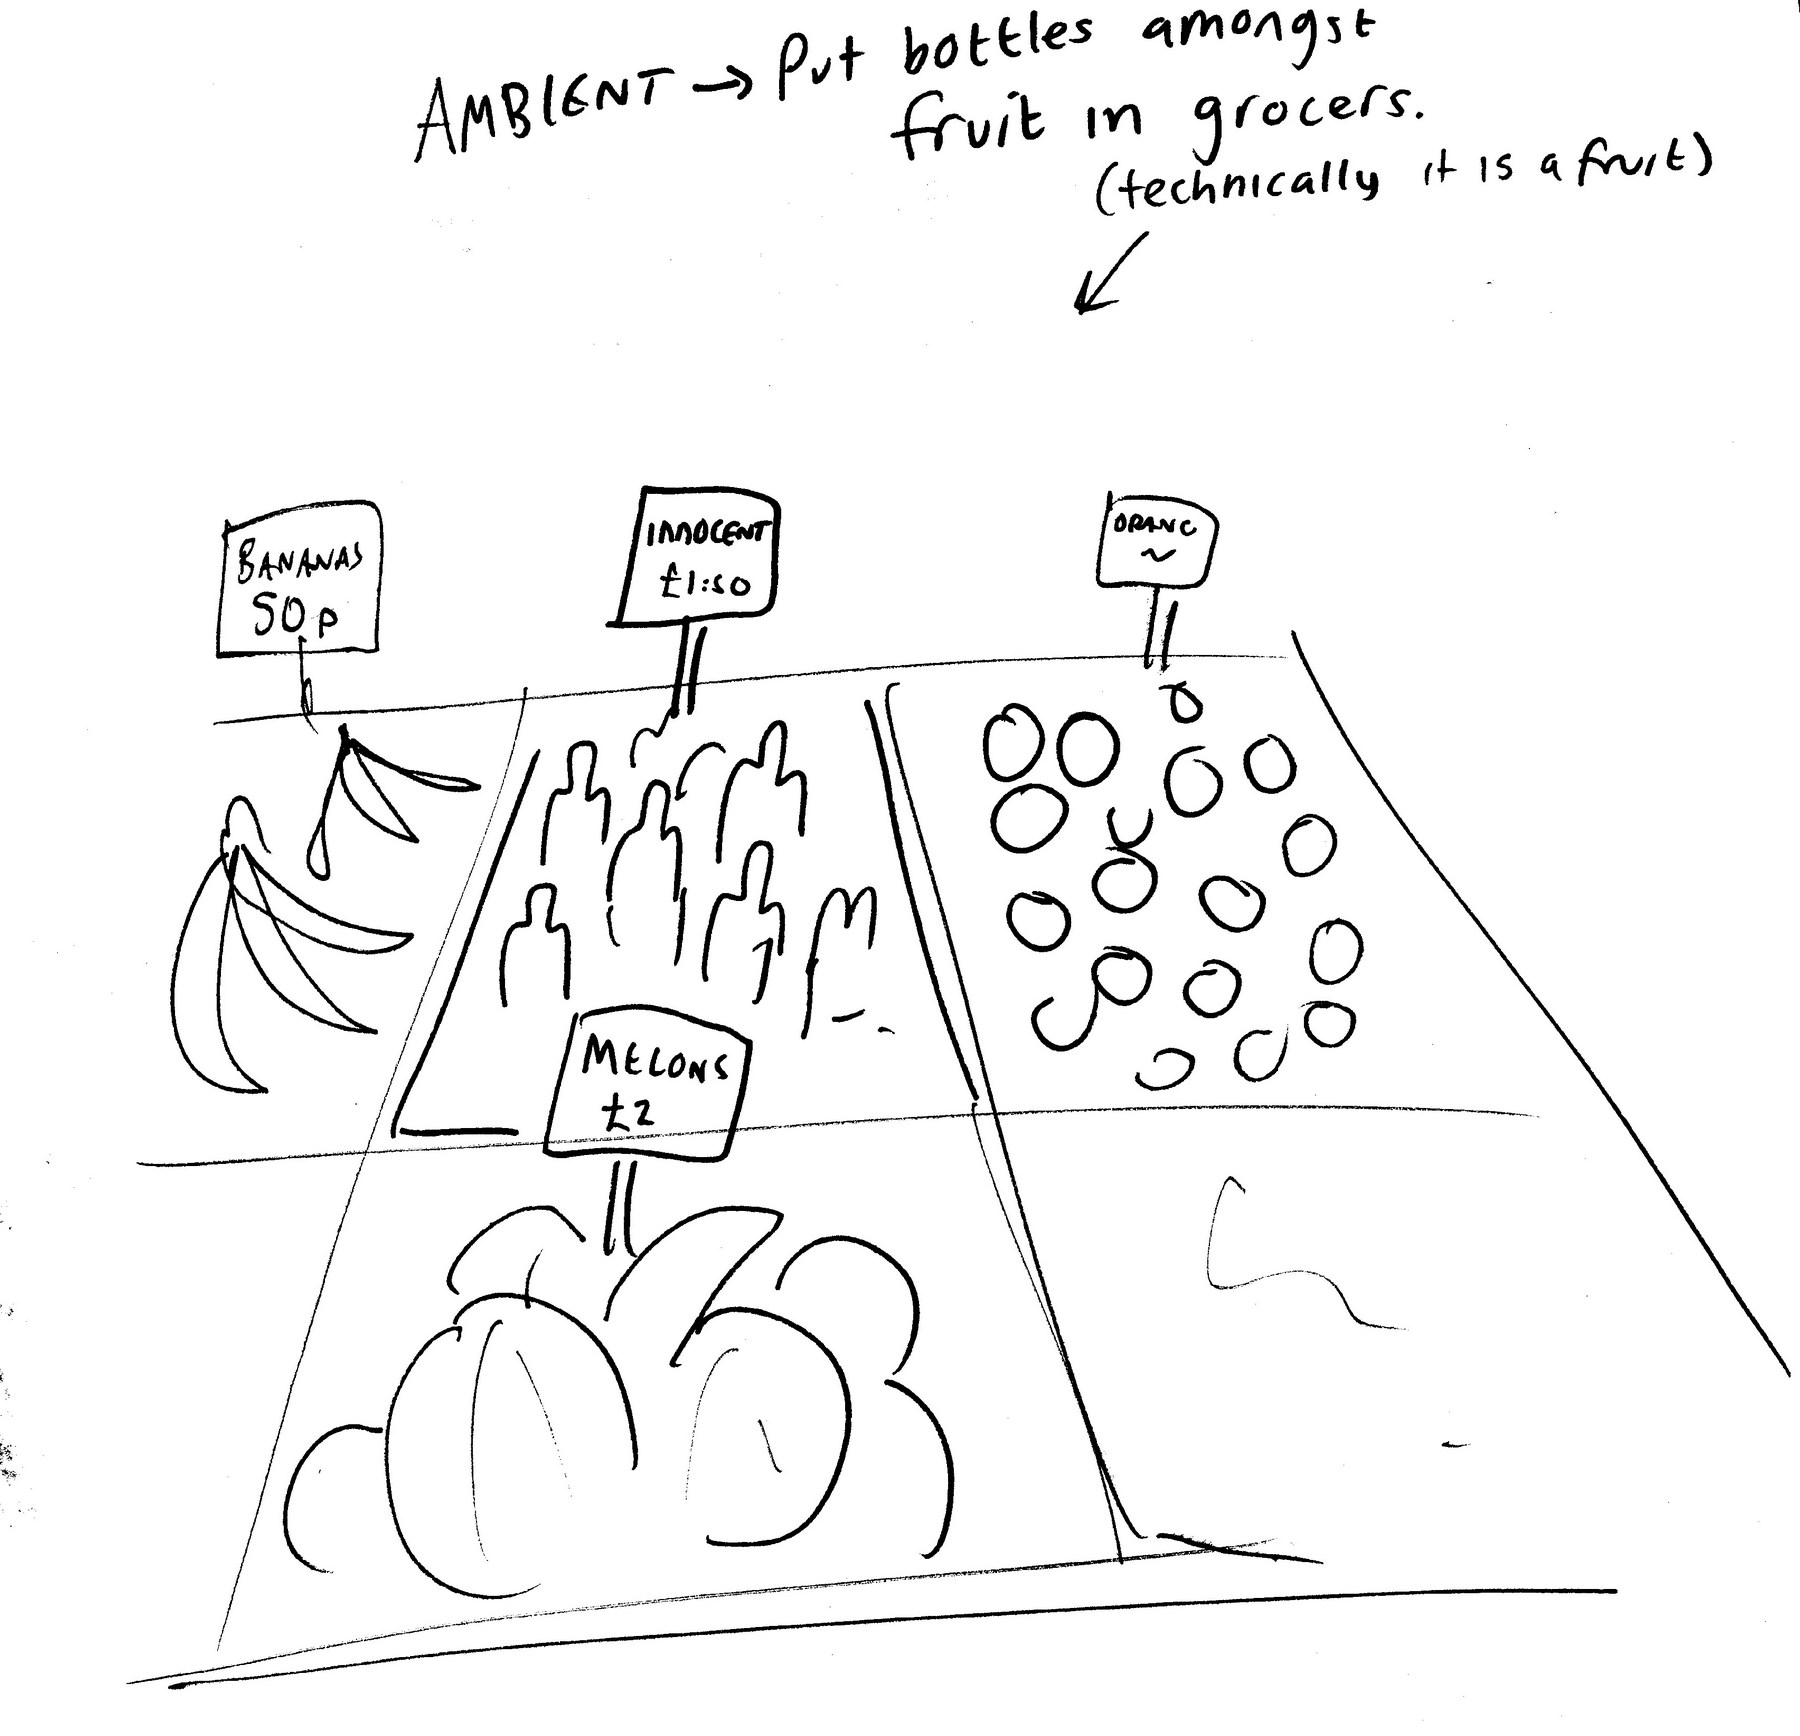 AMBIENT → Put bottles amongst
fruit in grocers.
(technically it is a fruit)
BANANAS
50p
INNOCENT
£1:50
ORANG
~
MELONS
£2